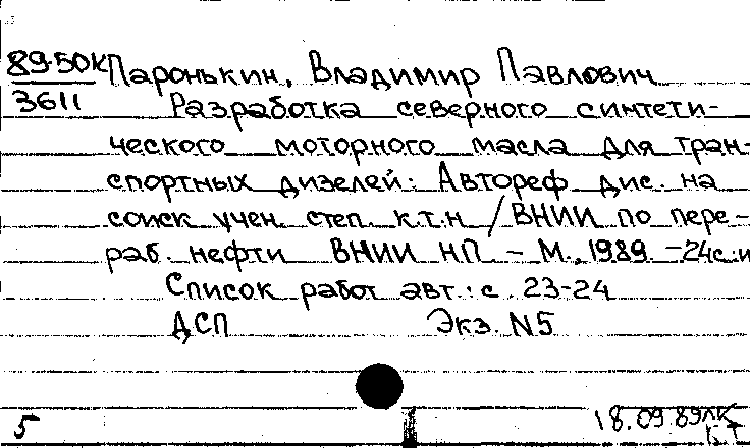 89-50К Паронькин, Владимир Павлович
3611 Разработка северного синтети-
ческого моторного масла для тран-
спортных дизелей: Автореф. дис. на
соиск учен. степ. к.т.н / ВНИИ по пере-
раб. нефти ВНИИ НП. – М., 1989. – 24с.и
Список работ авт.: с. 23-24
ДСП Экз. N5
5 18.09.89